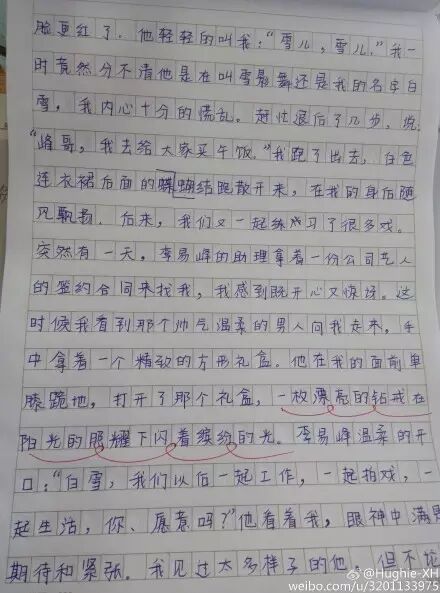 脸更红了。他轻轻的叫我："雪儿，雪儿。"我一
时竟然分不清他是在叫雪影舞还是我的名字白
雪，我内心十分的慌乱。赶忙退后了几步，说：
"峰哥，我去给大家买午饭。"我跑了出去，白色
连衣裙后面的蝴蝶结跑散开来，在我的身后随
风飘扬。后来，我们又一起练习了很多戏。
突然有一天，李易峰的助理拿着一份公司艺人
的签约合同来找我，我感到既开心又惊讶。这
时候我看到那个帅气温柔的男人向我走来，手
中拿着一个精致的方形礼盒。他在我的面前单
膝跪地，打开了那个礼盒，一枚漂亮的钻戒在
阳光的照耀下闪着缤纷的光。李易峰温柔的开
口："白雪，我们以后一起工作，一起拍戏，一
起生活，你、愿意吗？"他看着我，眼神中满是
期待和紧张。我见过太多样子的他，但不论
@Hughie-XH
weibo.com/u/3201133975